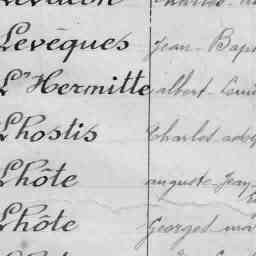 Levêques Jean-Bap
L'Hermitte albert-Loui
Lhostis Charles ado
Lhôte auguste-Jean
Lhôte Georges